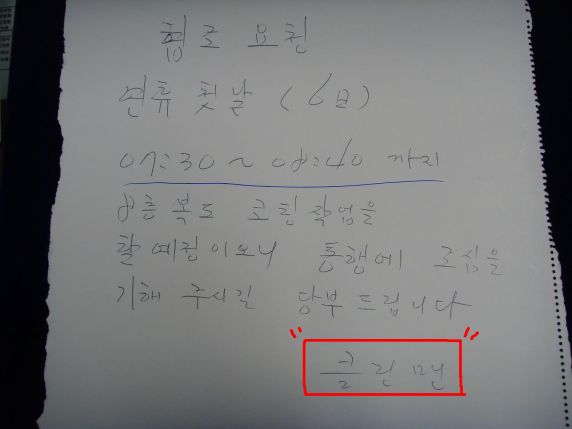 협조 요청
연휴 첫날 (6日)
07:30~08:40 까지
8층 복도 코팅작업을
할 예정이오니 통행에 조심을
기해 주시길 당부드립니다
"크린맨"